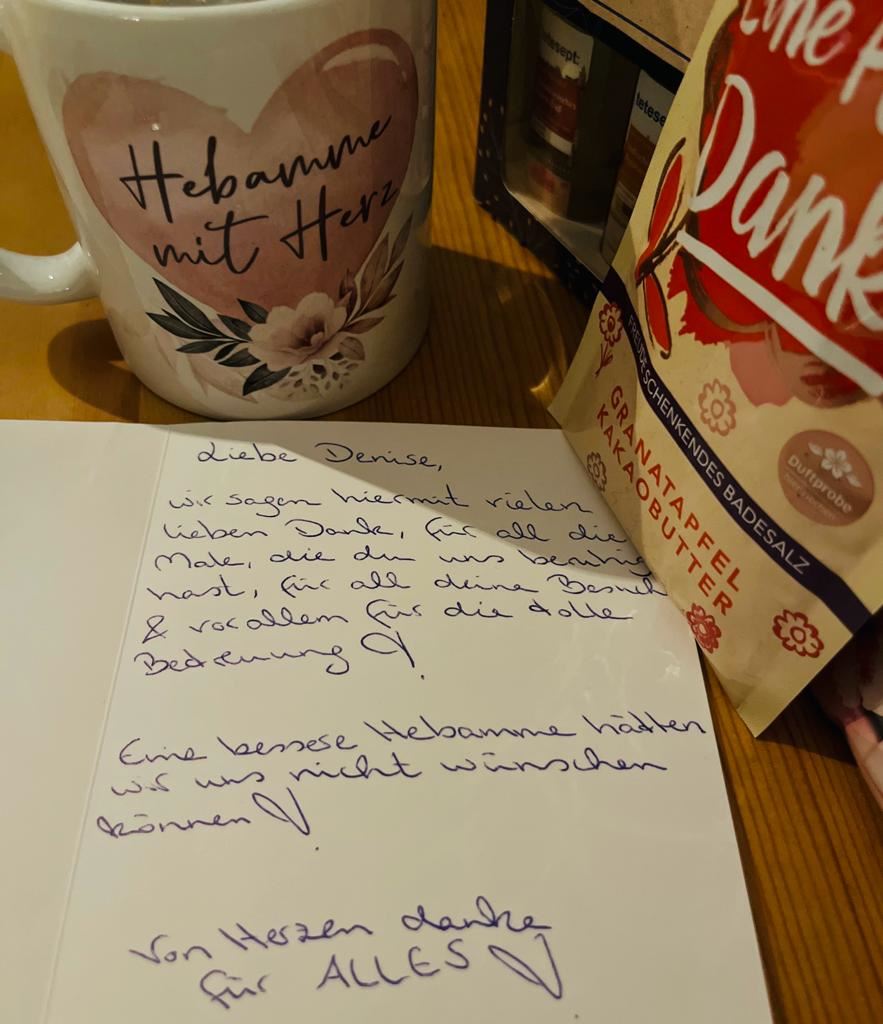 Hebamme
mit Herz
tetesept:
tetesept
Eine
Dank
FREUDESCHENKENDES BADESALZ
GRANATAPFEL
KAKAOBUTTER
Duftprobe
Liebe Denise,
wir sagen hiermit vielen
lieben Dank, für all die
Male, die du uns beruhig
hast, für all deine Besuch
& vor allem für die tolle
Betreuung
Eine bessere Hebamme hätten
wir uns nicht wünschen
können
Von Herzen danke
für ALLES